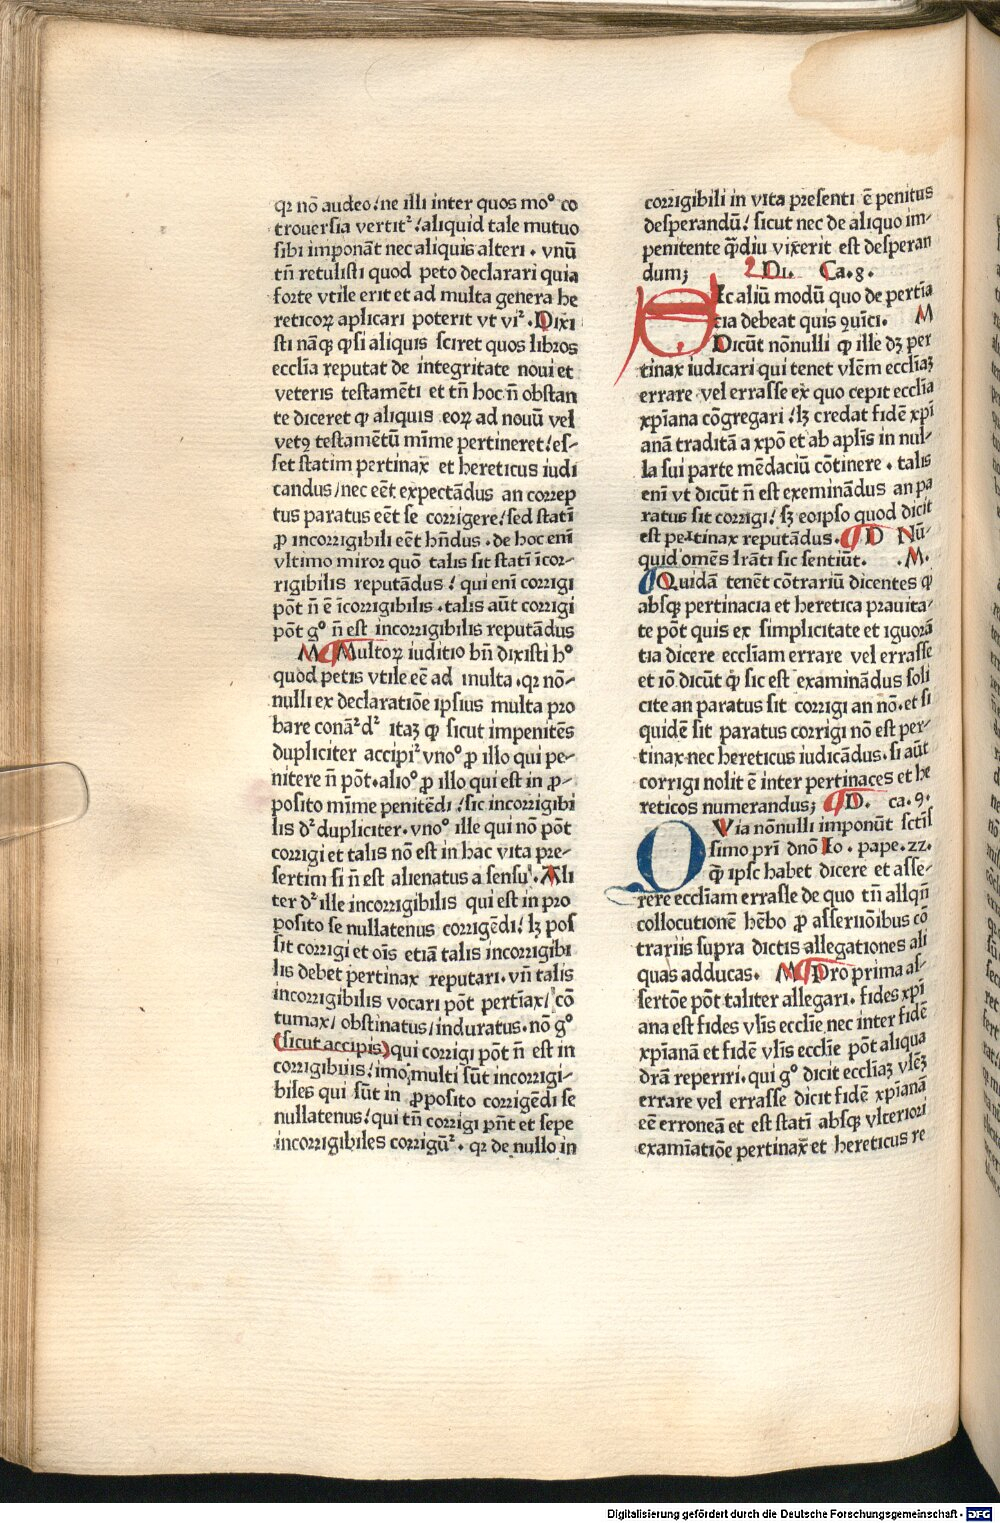 qꝛ nō audeo / ne illi inter quos mo° cō
trouersia vertit² / aliquid tale mutuo
sibi imponāt nec aliquis alteri . vnū
tn̄ retulisti quod peto declarari quia
forte vtile erit et ad multa genera he
reticoꝝ aplicari poterit vt vi² . Dixi
sti nāqꝫ ꝙ si aliquis sciret quos libros
ecclīa reputat de integritate noui et
veteris testamēti et tn̄ hoc n̄ obstan
te diceret ꝙ aliquis eoꝝ ad nouū vel
vetꝰ testamētū mīme pertineret / es-
set statim pertinax et hereticus iudi
candus / nec eēt expectādus an correp
tus paratus eēt se corrigere / sed statī
ꝓ incorrigibili eēt hn̄dus . de hoc enī
vltimo miror quō talis sit statī īcor-
rigibilis reputādus / qui enī corrigi
pōt n̄ ē īcorrigibilis . talis aūt corrigi
pōt g° n̄ est incorrigibilis reputādus
M Multoꝝ iuditio bn̄ dixisti h°
quod petis vtile eē ad multa . qꝛ nō-
nulli ex declaratiōe ipsius multa pro
bare conā²d² itaꝫ ꝙ sicut impenitēs
dupliciter accipi² vno° ꝓ illo qui pe-
nitere n̄ pōt . alio° ꝓ illo qui est in ꝓ-
posito mīme penitēdi / sic incorrigibi
lis d² dupliciter . vno° ille qui nō pōt
corrigi et talis nō est in hac vita pre-
sertim si n̄ est alienatus a sensu . Ali
ter d² ille incorrigibilis qui est in pro
posito se nullatenus corrigēdi / lꝫ pos
sit corrigi et oīs etiā talis incorrigibi
lis debet pertinax reputari . vn̄ talis
incorrigibilis vocari pōt pertīax / cō
tumax / obstinatus / induratus . nō g°
(sicut accipis) qui corrigi pōt n̄ est in
corrigibilis / imo multi sūt incorrigi-
biles qui sūt in ꝓposito corrigēdi se
nullatenus / qui tn̄ corrigi pn̄t et sepe
incorrigibiles corrigū² . qꝛ de nullo in
corrigibili in vita presenti ē penitus
desperandū / sicut nec de aliquo im-
penitente q̄diu vixerit est desperan
dum; Di. Ca . 8 .
Ic aliū modū quo de pertīa
cia debeat quis ꝯuīci . M
Dicūt nōnulli ꝙ ille dꝫ per
tinax iudicari qui tenet vlēm ecclīaꝫ
errare vel errasse ex quo cepit ecclīa
xp̄iana cōgregari / lꝫ credat fidē xp̄i
anā traditā a xp̄o et ab aplīs in nul-
la sui parte mēdaciū cōtinere . talis
enī vt dicūt n̄ est exeminādus an pa
ratus sit corrigi / sꝫ eoipso quod dicit
est pertinax reputādus . D Nū-
quid omēs lrāti sic sentiūt . . M .
Quidā tenēt cōtrariū dicentes ꝙ
absqꝫ pertinacia et heretica prauita-
te pōt quis ex simplicitate et iguorā
tia dicere ecclīam errare vel errasse
et iō dicūt ꝙ sic est examinādus soli
cite an paratus sit corrigi an nō . et si
quidē sit paratus corrigi nō est per-
tinax nec hereticus iudicādus . si aūt
corrigi nolit ē inter pertinaces et he
reticos numerandus; D . ca . 9 .
QVia nōnulli imponūt sctīs
simo prī dnō Io . pape . 22 .
ꝙ ipse habet dicere et asse-
rere ecclīam errasse de quo tn̄ allqn̄
collocutionē hēbo ꝓ assertiōibus cō
trariis supra dictis allegationes ali
quas adducas . M Pro prima as-
sertōe pōt taliter allegari . fides xp̄i
ana est fides vlīs ecclīe nec inter fidē
xp̄ianā et fidē vlīs ecclīe pōt aliqua
drā reperiri . qui g° dicit ecclīaꝫ vlēꝫ
errare vel errasse dicit fidē xp̄ianā
eē erroneā et est statī absqꝫ vlteriori
examīatiōe pertinax̄ et hereticus re
Digitalisierung gefördert durch die Deutsche Forschungsgemeinschaft - DFG